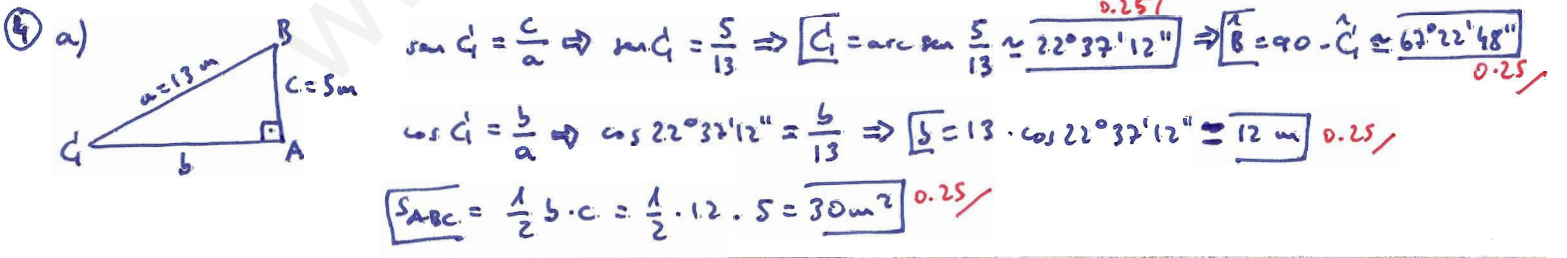 ④ a)
B
a=13 m
c=5m
C
b
A
sen Ĉ = c/a ⇒ sen Ĉ = 5/13 ⇒ Ĉ = arc sen 5/13 ≃ 22°37'12" ⇒ B̂ = 90 - Ĉ ≃ 67°22'48"
0.25/
0.25/
cos Ĉ = b/a ⇒ cos 22°37'12" = b/13 ⇒ b = 13 · cos 22°37'12" = 12 m 0.25/
S_ABC = 1/2 b·c = 1/2 · 12 · 5 = 30 m² 0.25/